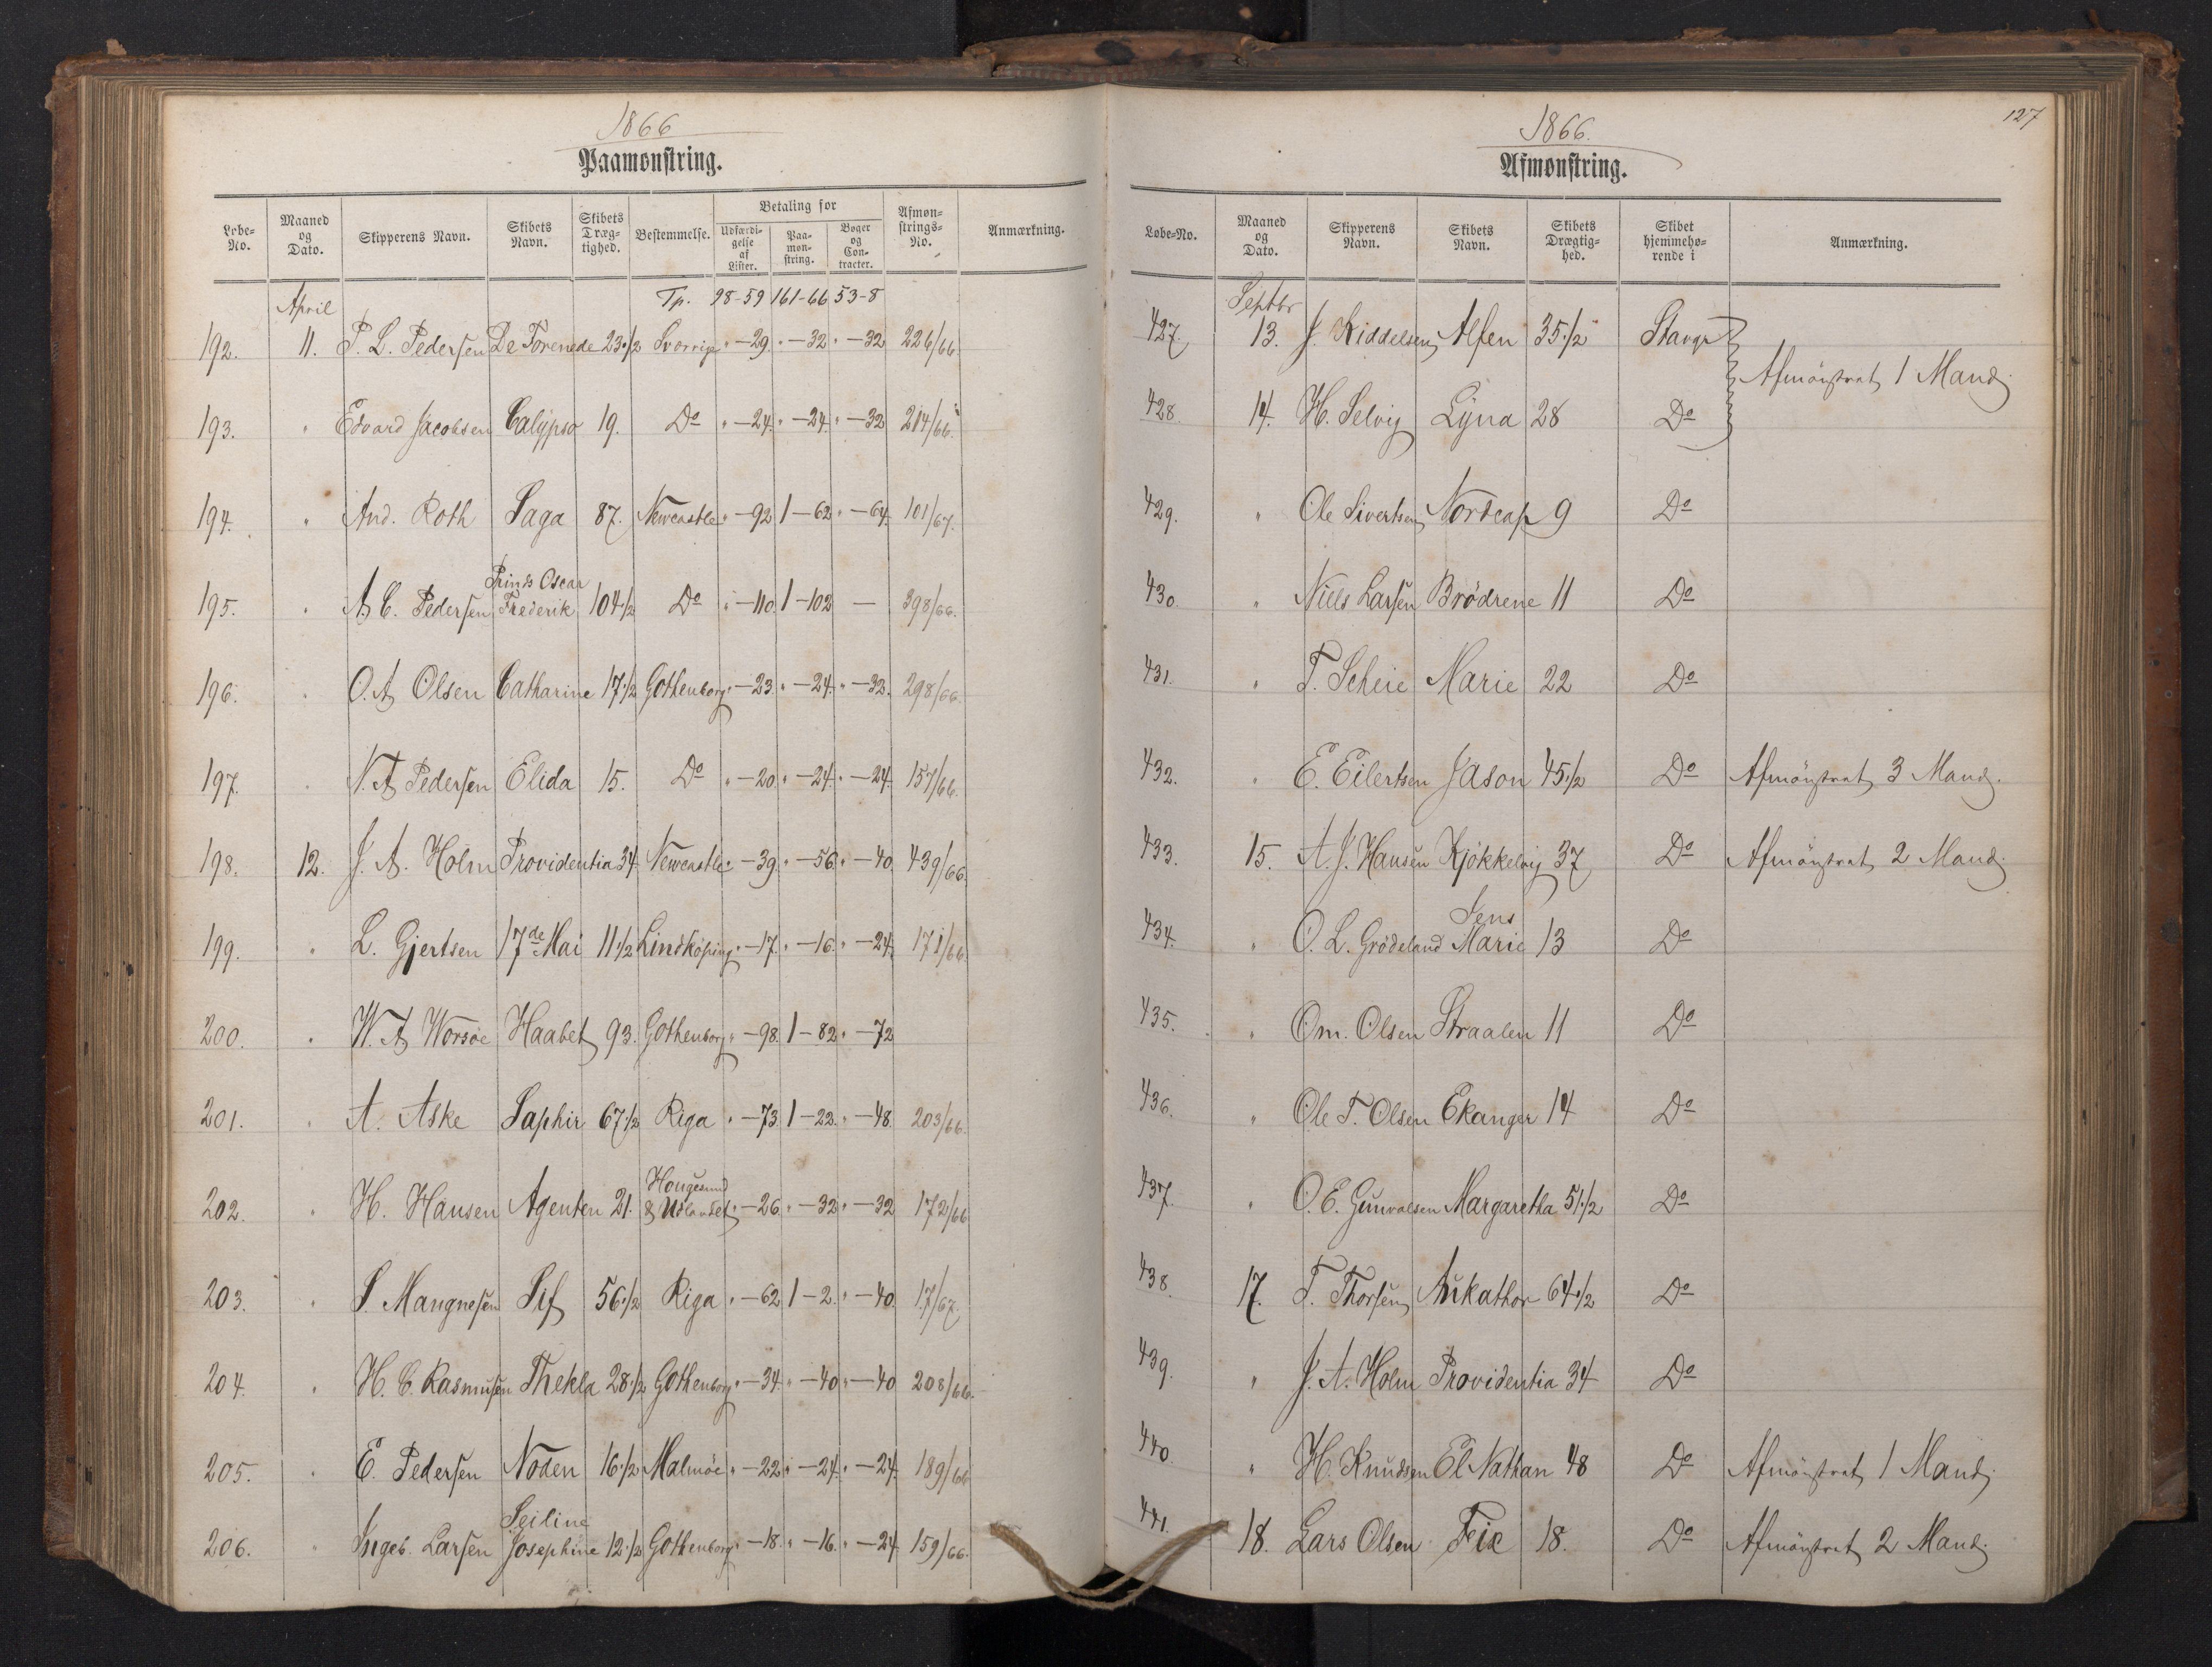 1866
Paamønstring.
Løbe-No. Maaned og Dato. Skipperens Navn. Skibets Navn. Skibets Drægtighed. Bestemmelse. Betaling for Udfærdigelse af Lister. Paamønstring. Bøger og Contracter. Afmønstrings-No. Anmærkning.
April Tp. 98-59 161-66 53-8
192. 11. P. L. Pedersen De Forenede 23 1/2 Sverrige " -29. " -32 " -32 226/66.
193. " Edvard Jacobsen Calypso 19. Do " -24. " -24. " -32 214/66.
194. " And. Roth Saga 87. Newcastle " -92 1 -62 " -64. 101/67.
195. " A. C. Pedersen Prinds Oscar Frederik 104 1/2 Do " -110. 1 -102 — 398/66.
196. " O. A. Olsen Catharine 17 1/2 Gothenborg " -23. " -24. " -32. 298/66.
197. " N. A. Pedersen Elida 15. Do " -20. " -24. " -24. 157/66.
198. 12. J. A. Holm Providentia 34. Newcastle " -39. " -56. " -40. 439/66.
199. " L. Gjertsen 17de Mai 11 1/2 Lindköping " -17. " -16. " -24. 171/66.
200. " W. A. Worsöe Haabet 93. Gothenborg " -98. 1 -82 " -72
201. " A. Aske Saphir 67 1/2 Riga " -73. 1 -22. " -48. 203/66.
202. " H. Hansen Agenten 21. Hougesund & Udlandet " -26. " -32 " -32 172/66
203. " S. Mangnesen Sif 56 1/2 Riga " -62 1 -2. " -40. 17/67.
204. " H. C. Rasmusen Thekla 28 1/2 Gothenborg " -34. " -40 " -40 208/66.
205. " E. Pedersen Noden 16 1/2 Malmöe " -22 " -24. " -24. 189/66
206. " Ingeb. Larsen Seiline Josephine 12 1/2 Gothenborg " -18. " -16. " -24. 159/66.
127
1866.
Afmønstring.
Løbe-No. Maaned og Dato. Skipperens Navn. Skibets Navn. Skibets Drægtighed. Skibet hjemmehørende i Anmærkning.
Septbr
427. 13. J. Kiddelsen Alfen 35 1/2 Stavgr
Afmönstrat 1 Mand.
428. 14. H. Selvig Lyna 28 Do
429. " Ole Sivertsen Nordcap 9 Do
430. " Niels Larsen Brödrene 11 Do
431. " T. Scheie Marie 22 Do
432. " E. Eilertsen Jason 45 1/2 Do Afmönstrat 3 Mand.
433. 15. A. J. Hansen Kjökkelvig 37 Do Afmönstrat 2 Mand.
434. " O. L. Grödeland Jens Marie 13 Do
435. " Om. Olsen Straalen 11 Do
436. " Ole T. Olsen Ekanger 14 Do
437. " O. E. Gunvalsen Margaretha 51 1/2 Do
438. 17. T. Thorsen Ankathor 64 1/2 Do
439. " J. A. Holm Providentia 34 Do
440. " H. Knudsen El Nathan 48 Do Afmönstrat 1 Mand.
441. 18. Lars Olsen Feie 18. Do Afmönstrat 2 Mand.